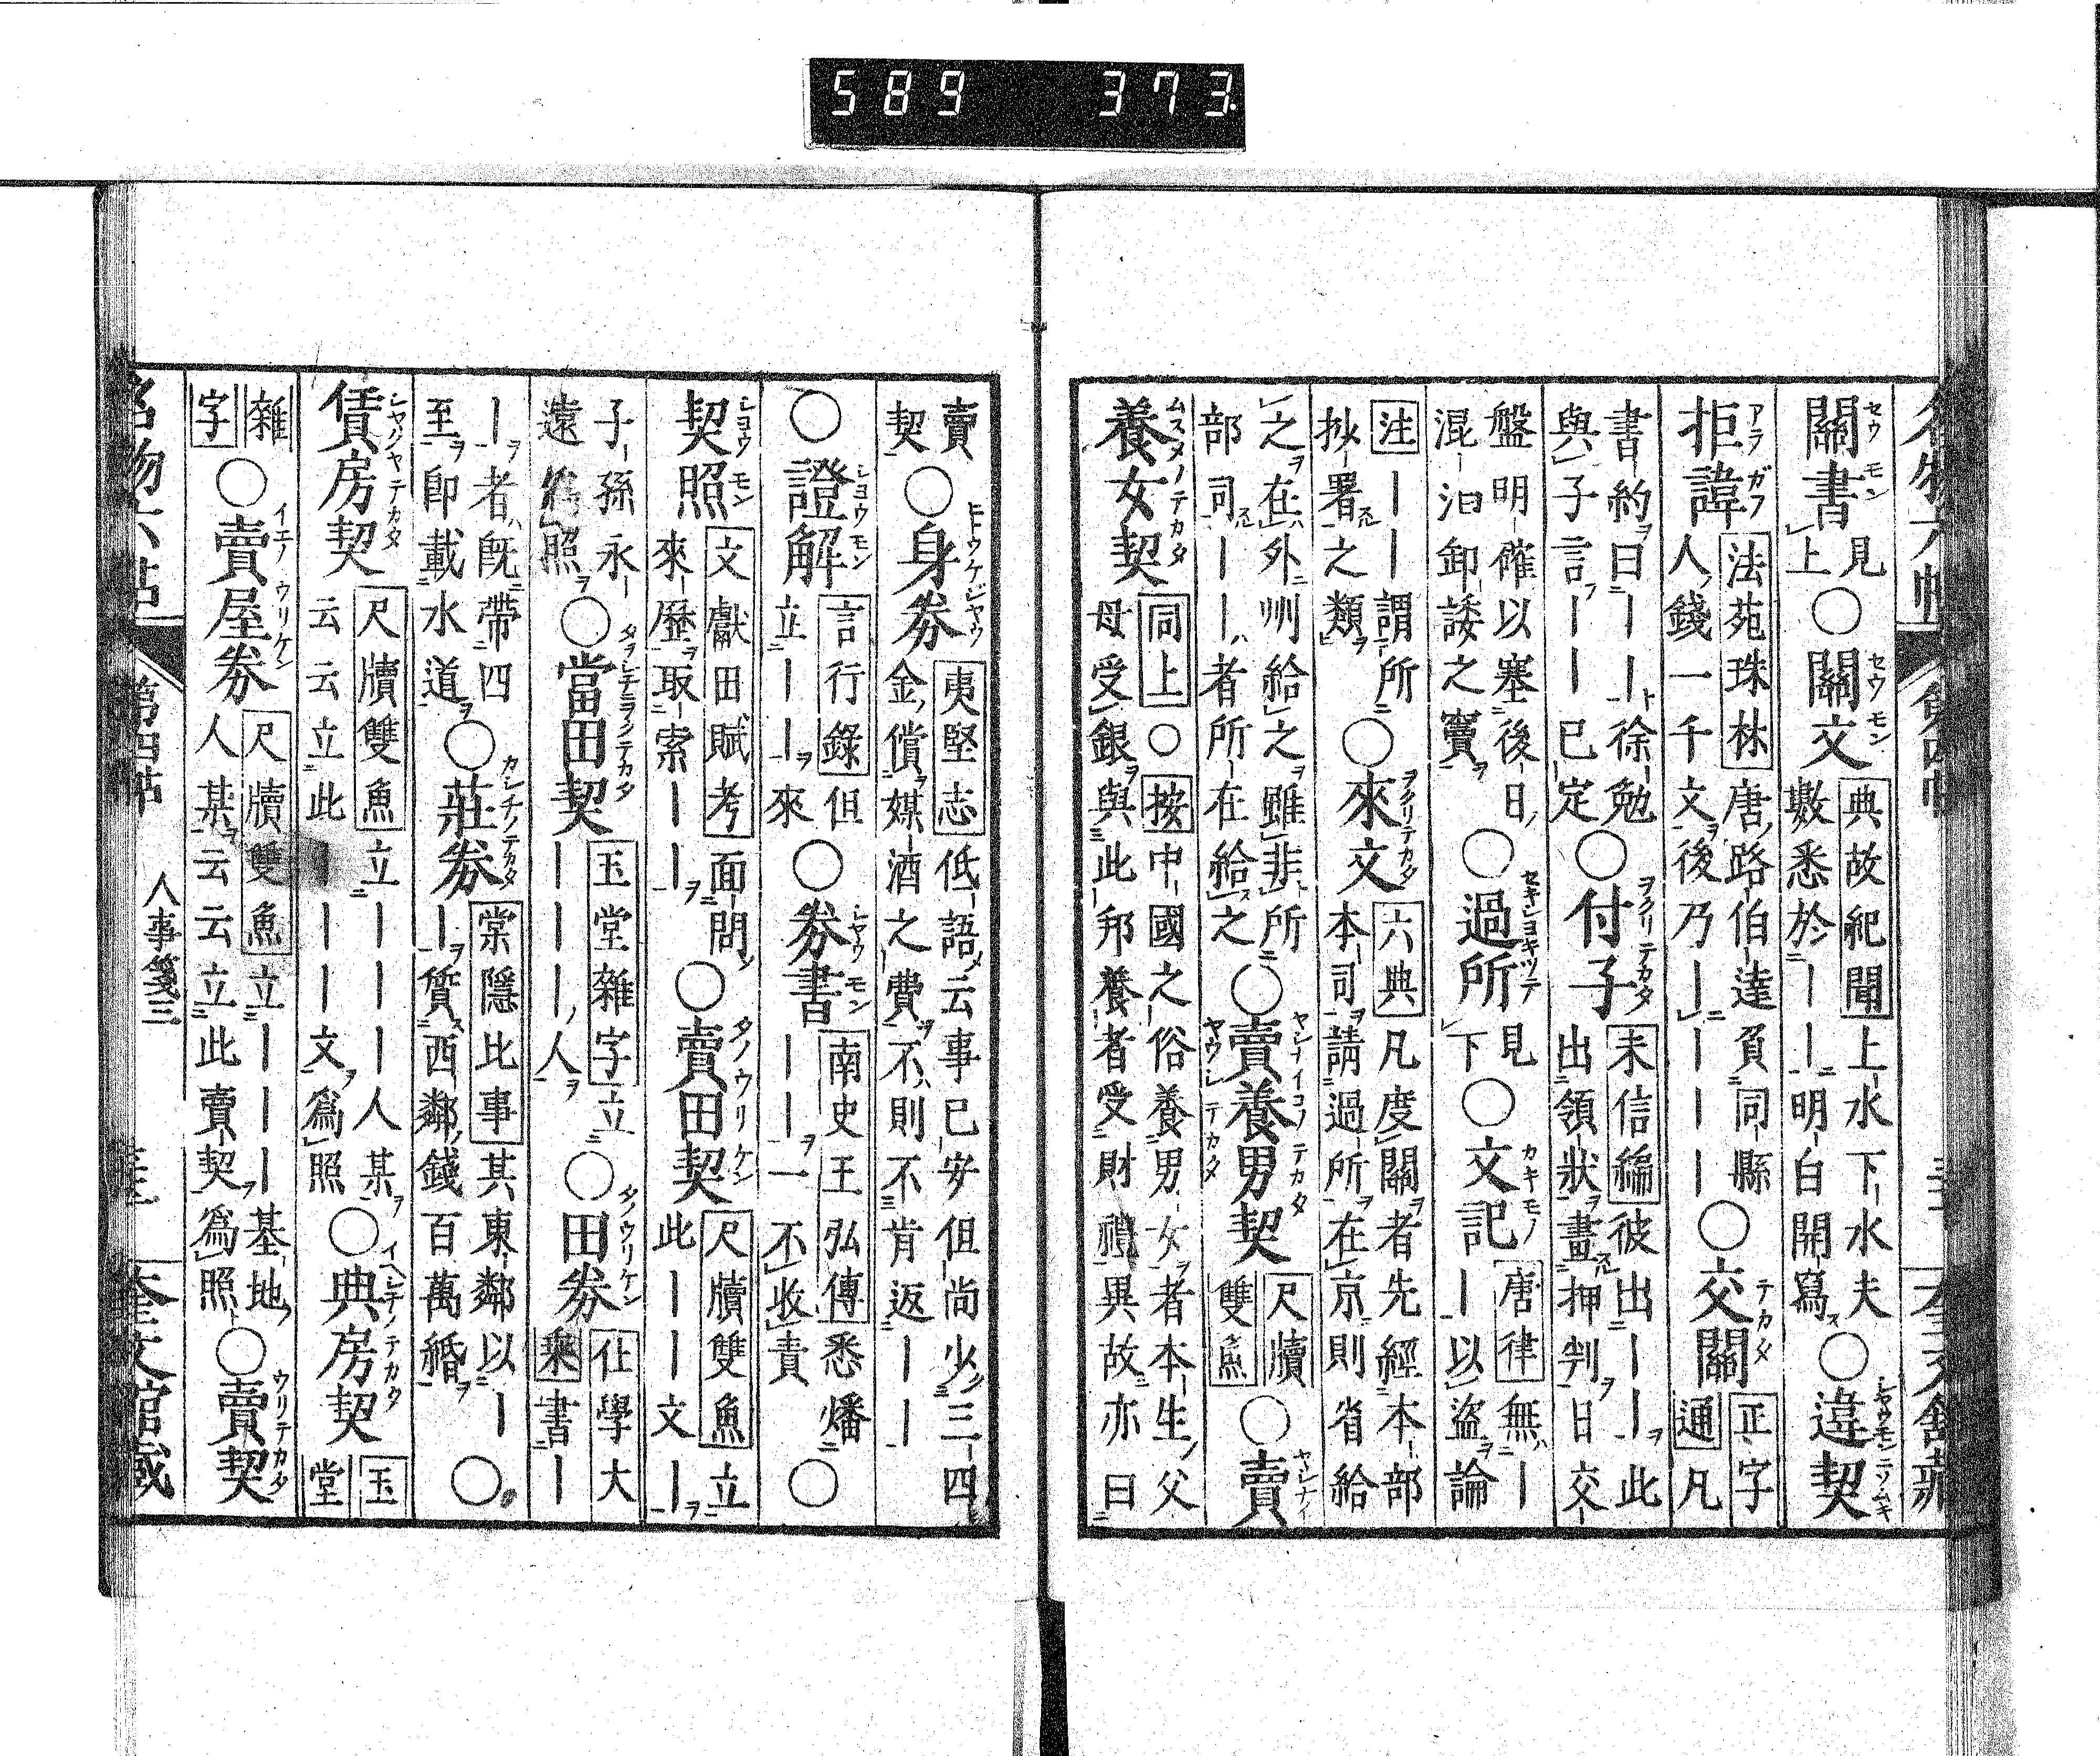 589 373.
關書 見上 ○ 關文 典故紀聞 上水下水夫數悉於｜｜明白開寫 ○ 違契
拒諱 法苑珠林 唐路伯達負同縣人錢一千文後乃｜｜｜｜ ○ 交關 正字通 凡
書約曰｜｜徐勉與子言｜｜已定 ○ 付子 未信編 彼出｜｜此出領狀畫押判日交
盤明確以塞後日混汨卸諉之竇 ○ 過所 見下 ○ 文記 唐律 無｜｜以盜論
注 ｜｜謂所拟署之類 ○ 來文 六典 凡度關者先經本部本司請過所在京則省給
之在外州給之雖非所部司｜｜者所在給之 ○ 賣養男契 尺牘雙魚 ○ 賣
養女契 同上 ○ 按 中國之俗養男女者本生父母受銀與此邦養者受財禮異故亦曰
賣契 ○ 身券 夷堅志 低語云事已安但尚少三四金償媒酒之費不則不肯返｜｜
○ 證解 言行錄 但立｜｜來 ○ 券書 南史王弘傳 悉燔｜｜一不收責 ○
契照 文獻田賦考 面問來歷取索｜｜ ○ 賣田契 尺牘雙魚 立此｜｜文｜
子孫永遠爲照 ○ 當田契 玉堂雜字 立｜｜｜人 ○ 田券 仕學大乘 書｜
｜者旣帶四至卽載水道 ○ 莊券 棠隱比事 其東鄰以｜｜質西鄰錢百萬緡 ○
賃房契 尺牘雙魚 立｜｜｜人某云云立此｜｜｜文爲照 ○ 典房契 玉堂
雜字 ○ 賣屋券 尺牘雙魚 立｜｜｜基地人某云云立此賣契爲照 ○ 賣契
名物六帖 第四帖 人事箋三 奎文館藏